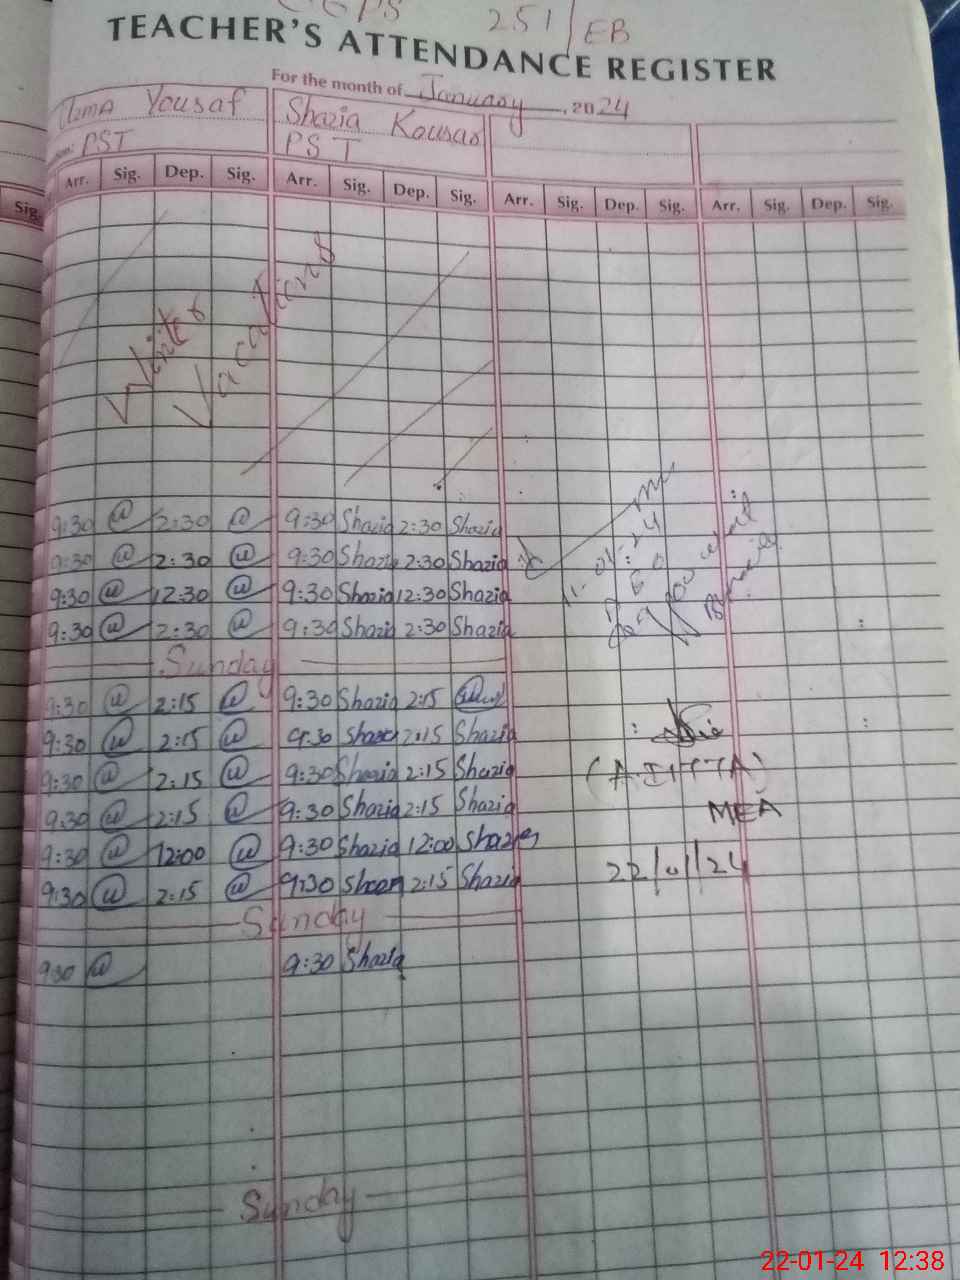 GGPS 251/EB
TEACHER'S ATTENDANCE REGISTER
For the month of January, 2024
Uzma Yousaf Shazia Kousar
PST PST
Sig. Arr. Sig. Dep. Sig. Arr. Sig. Dep. Sig. Arr. Sig. Dep. Sig. Arr. Sig. Dep. Sig.
Winter
Vacations
9:30 2:30 9:30 Shazia 2:30 Shazia
9:30 2:30 9:30 Shazia 2:30 Shazia
9:30 12:30 9:30 Shazia 12:30 Shazia
9:30 2:30 9:30 Shazia 2:30 Shazia
11-01-24
Sunday
9:30 2:15 9:30 Shazia 2:15
9:30 2:15 9:30 Shazia 2:15 Shazia
9:30 2:15 9:30 Shazia 2:15 Shazia
9:30 2:15 9:30 Shazia 2:15 Shazia
MEA
9:30 12:00 9:30 Shazia 12:00 Shazia
22/01/24
9:30 2:15 9:30 2:15 Shazia
Sunday
9:30 9:30 Shazia
Sunday
22-01-24 12:38